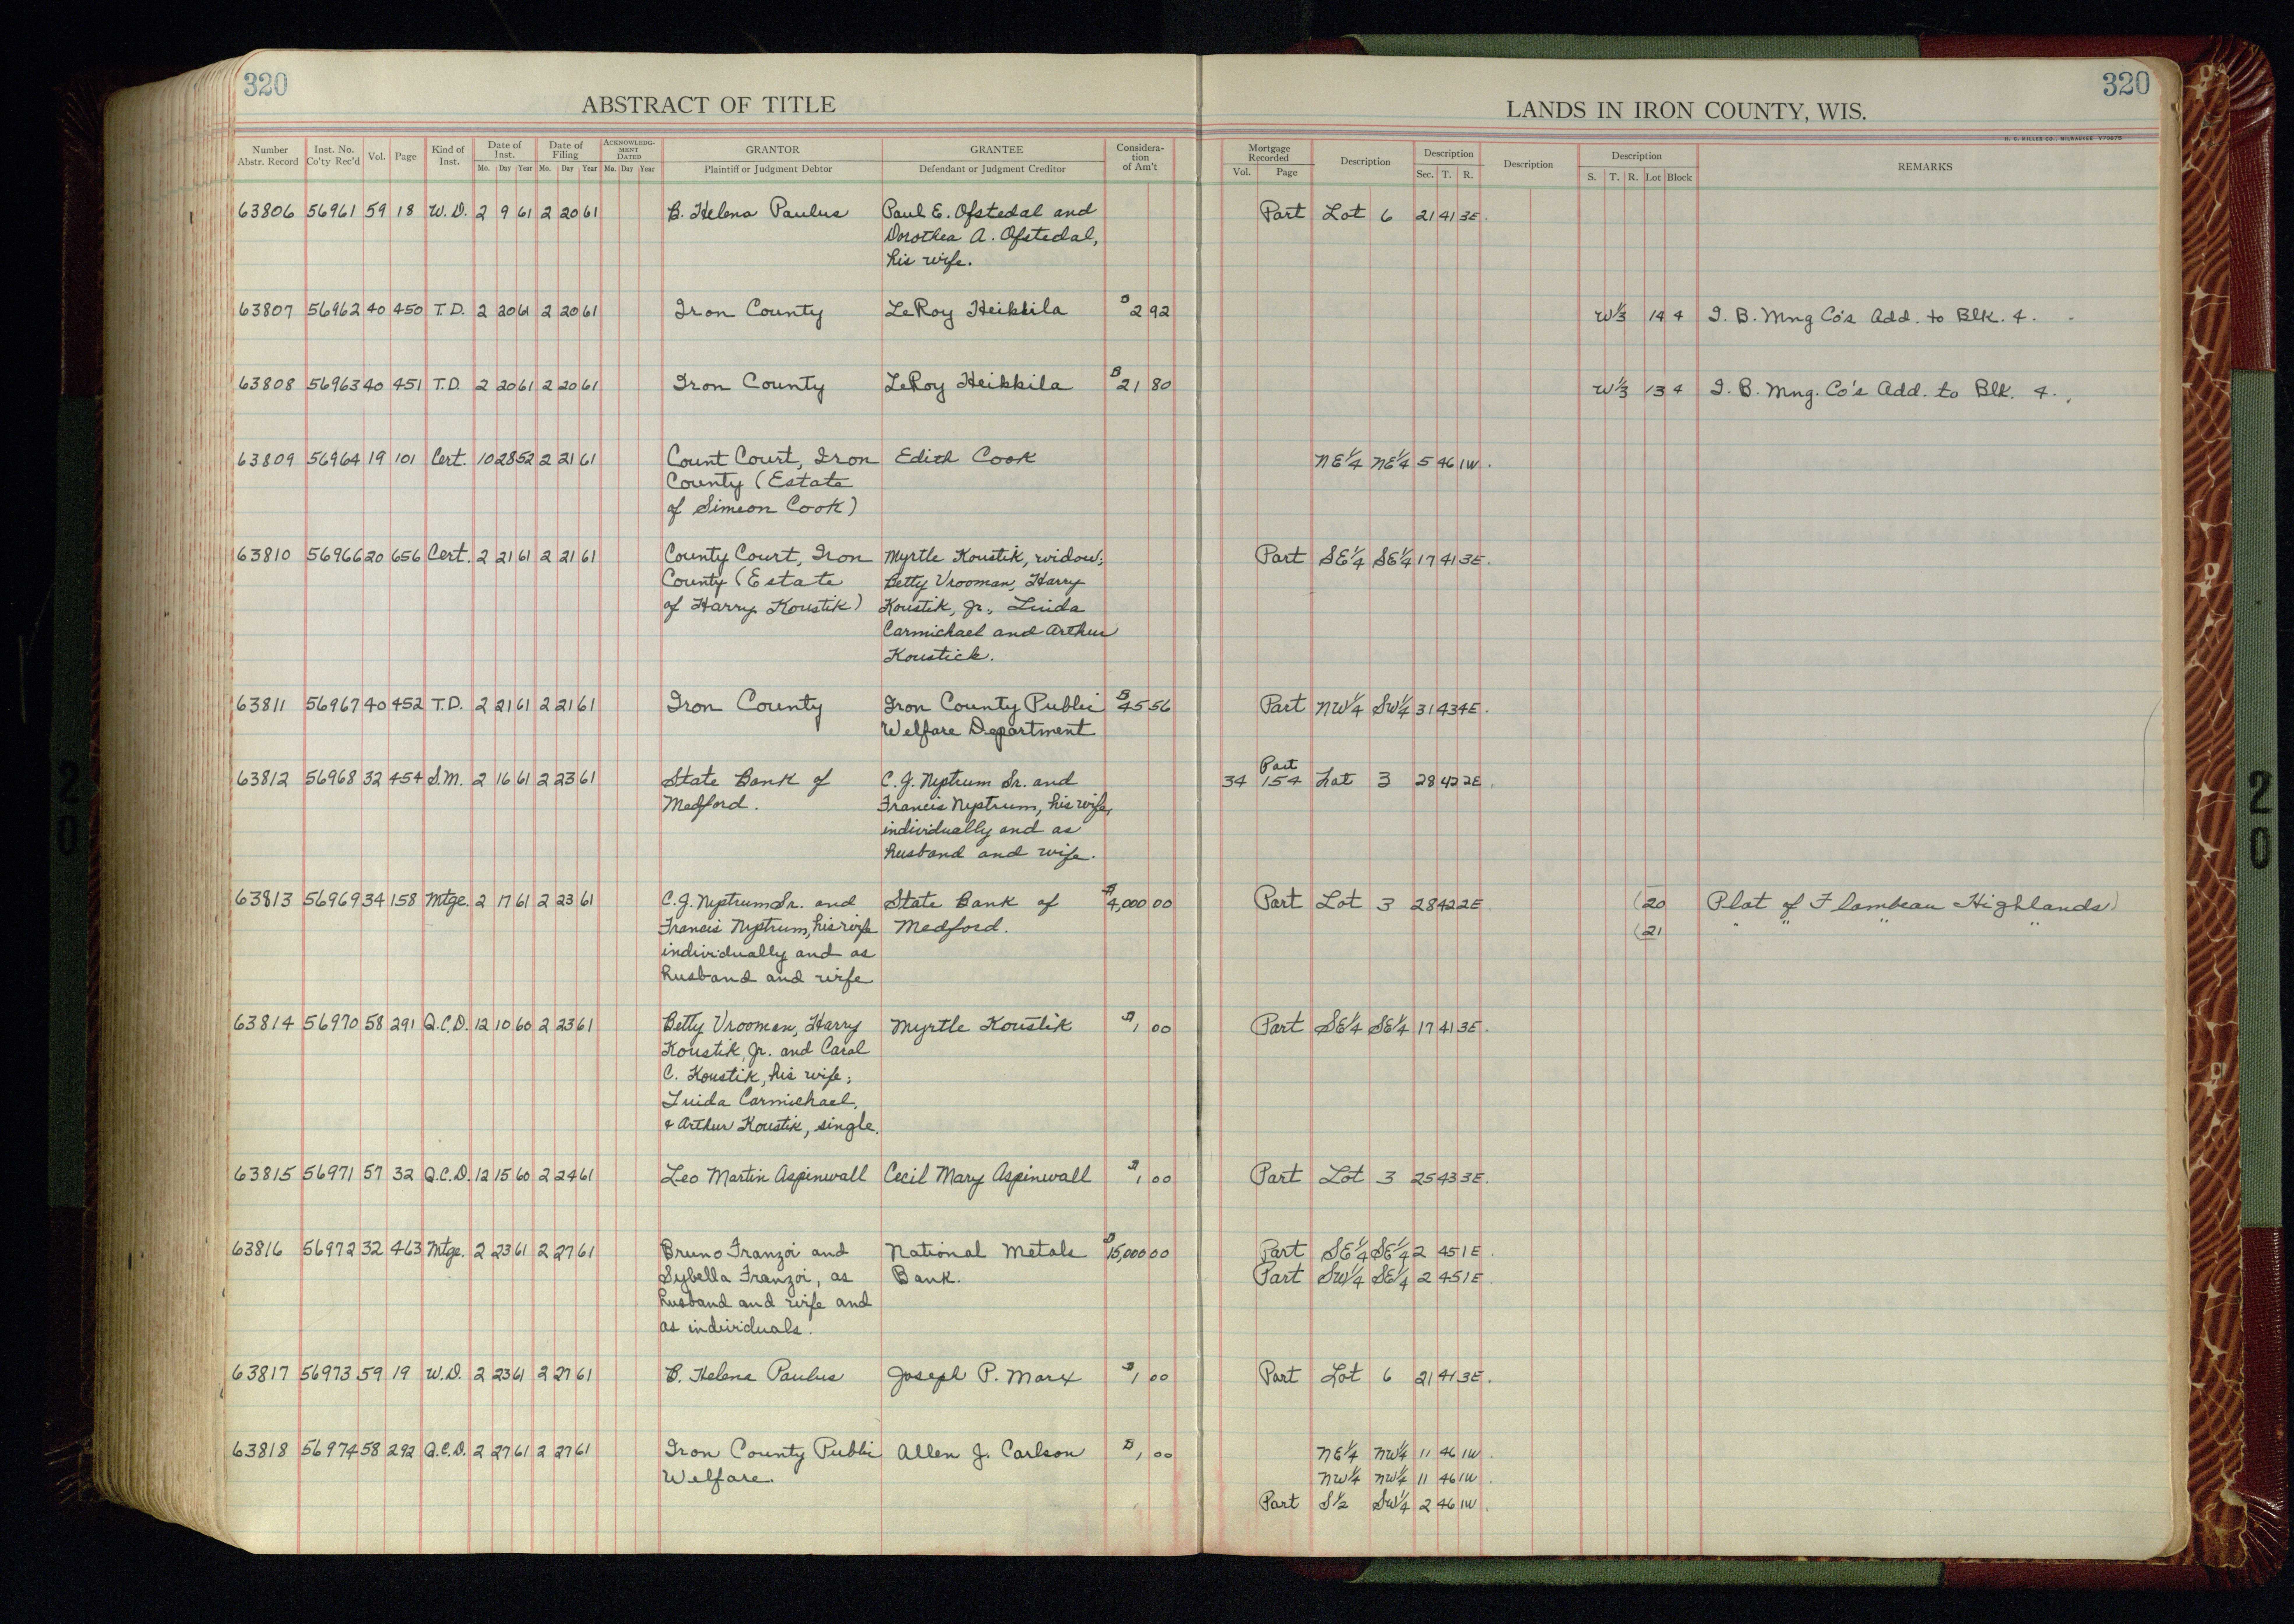 320
320
ABSTRACT OF TITLE
LANDS IN IRON COUNTY, WIS.
H. C. MILLER CO., MILWAUKEE
Number Abstr. Record | Inst. No. Co'ty Rec'd | Vol. | Page | Kind of Inst. | Date of Inst. Mo. Day Year | Date of Filing Mo. Day Year | ACKNOWLEDGMENT DATED Mo. Day Year | GRANTOR Plaintiff or Judgment Debtor | GRANTEE Defendant or Judgment Creditor | Consideration of Am't | Mortgage Recorded Vol. Page | Description | Description Sec. T. R. | Description | Description S. T. R. Lot Block | REMARKS
63806 56961 59 18 W.D. 2 9 61 2 20 61 B. Helena Paulus Paul E. Ofstedal and Part Lot 6 21 41 3E.
Dorothea A. Ofstedal,
his wife.
63807 56962 40 450 T.D. 2 20 61 2 20 61 Iron County LeRoy Heikkila $2 92 W⅓ 14 4 I. B. Mng Co's Add. to Blk. 4.
63808 56963 40 451 T.D. 2 20 61 2 20 61 Iron County LeRoy Heikkila $21 80 W⅓ 13 4 I. B. Mng. Co's Add. to Blk. 4.
63809 56964 19 101 Cert. 10 28 52 2 21 61 Count Court, Iron Edith Cook NE¼ NE¼ 5 46 1W.
County (Estate
of Simeon Cook)
63810 56966 20 656 Cert. 2 21 61 2 21 61 County Court, Iron Myrtle Koustik, widow; Part SE¼ SE¼ 17 41 3E.
County (Estate Betty Vrooman, Harry
of Harry Koustik) Koustik, Jr., Luida
Carmichael and Arthur
Koustick.
63811 56967 40 452 T.D. 2 21 61 2 21 61 Iron County Iron County Public $45 56 Part NW¼ SW¼ 31 43 4E.
Welfare Department
63812 56968 32 454 S.M. 2 16 61 2 23 61 State Bank of C. J. Nystrum Sr. and 34 Part 154 Lot 3 28 42 2E.
Medford. Francis Nystrum, his wife,
individually and as
husband and wife.
63813 56969 34 158 Mtge. 2 17 61 2 23 61 C. J. Nystrum Sr. and State Bank of $4,000 00 Part Lot 3 28 42 2E. (20 Plat of Flambeau Highlands)
Francis Nystrum, his wife Medford. (21 " " " "
individually and as
husband and wife
63814 56970 58 291 Q.C.D. 12 10 60 2 23 61 Betty Vrooman, Harry Myrtle Koustik $1 00 Part SE¼ SE¼ 17 41 3E.
Koustik, Jr. and Carol
C. Koustik, his wife;
Luida Carmichael,
& Arthur Koustik, single.
63815 56971 57 32 Q.C.D. 12 15 60 2 24 61 Leo Martin Aspinwall Cecil Mary Aspinwall $1 00 Part Lot 3 25 43 3E.
63816 56972 32 463 Mtge. 2 23 61 2 27 61 Bruno Franzoi and National Metals $15,000 00 Part SE¼ SE¼ 2 45 1E.
Sybella Franzoi, as Bank. Part SW¼ SE¼ 2 45 1E.
husband and wife and
as individuals.
63817 56973 59 19 W.D. 2 23 61 2 27 61 B. Helena Paulus Joseph P. Marx $1 00 Part Lot 6 21 41 3E.
63818 56974 58 292 Q.C.D. 2 27 61 2 27 61 Iron County Public Allen J. Carlson $1 00 NE¼ NW¼ 11 46 1W
Welfare. NW¼ NW¼ 11 46 1W.
Part S½ SW¼ 2 46 1W.
20
20